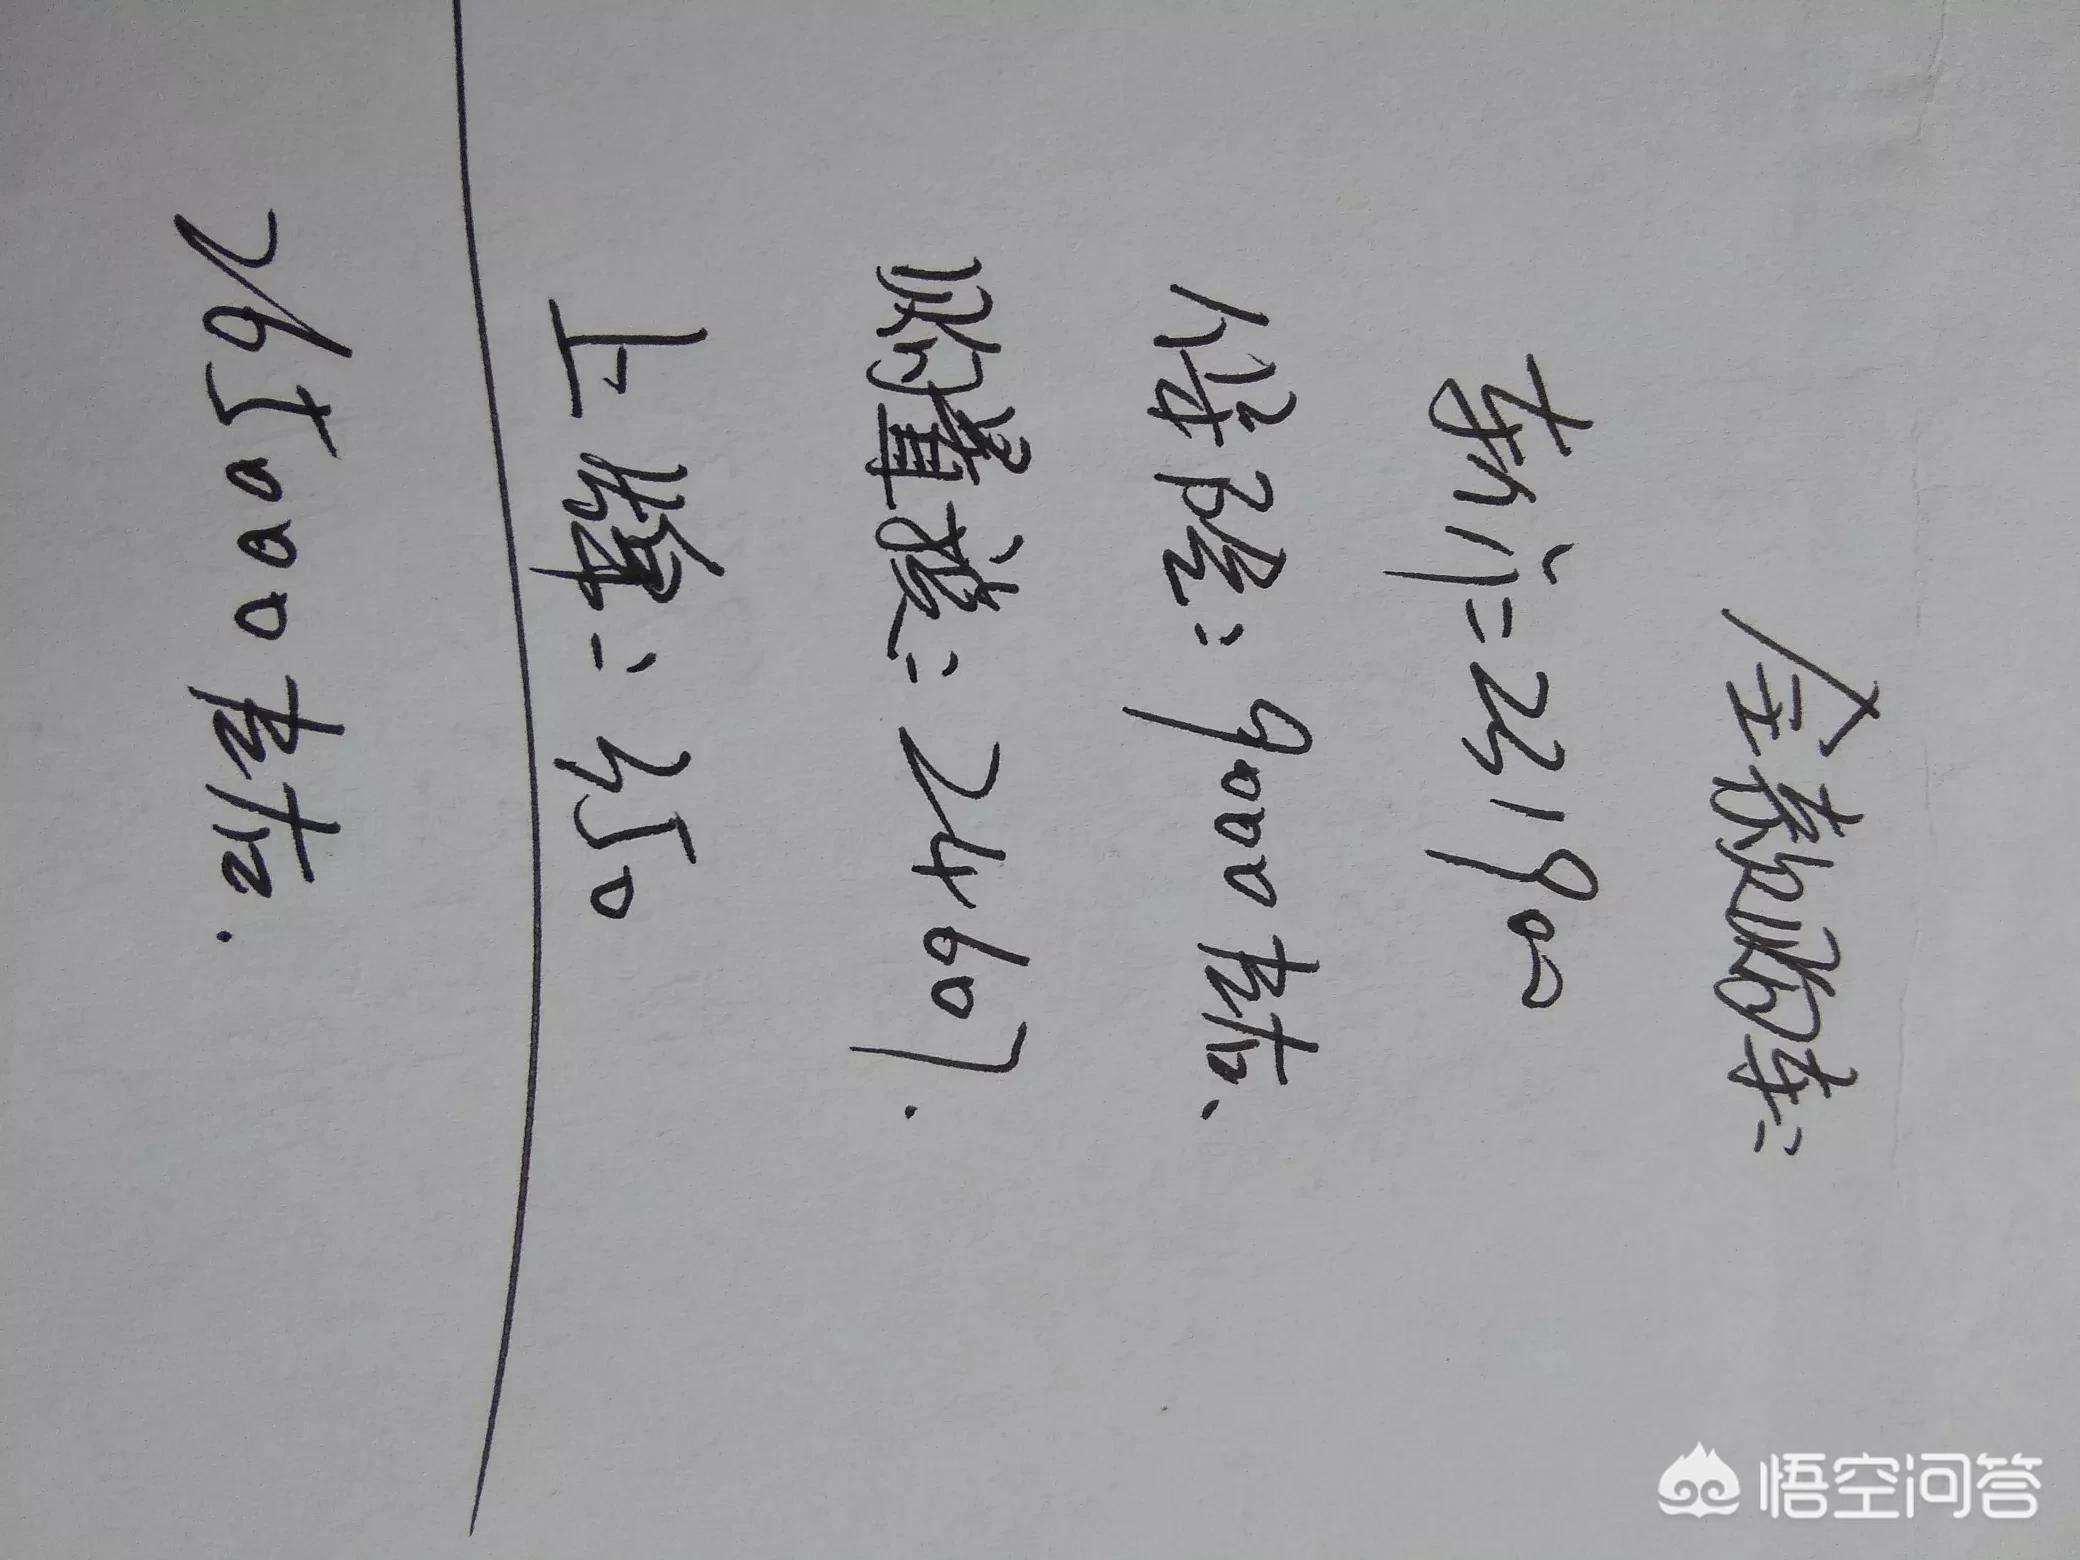 全款购车:
车价:231900
保险:9000左右.
购置税:24607.
上牌:350
265000左右.
悟空问答